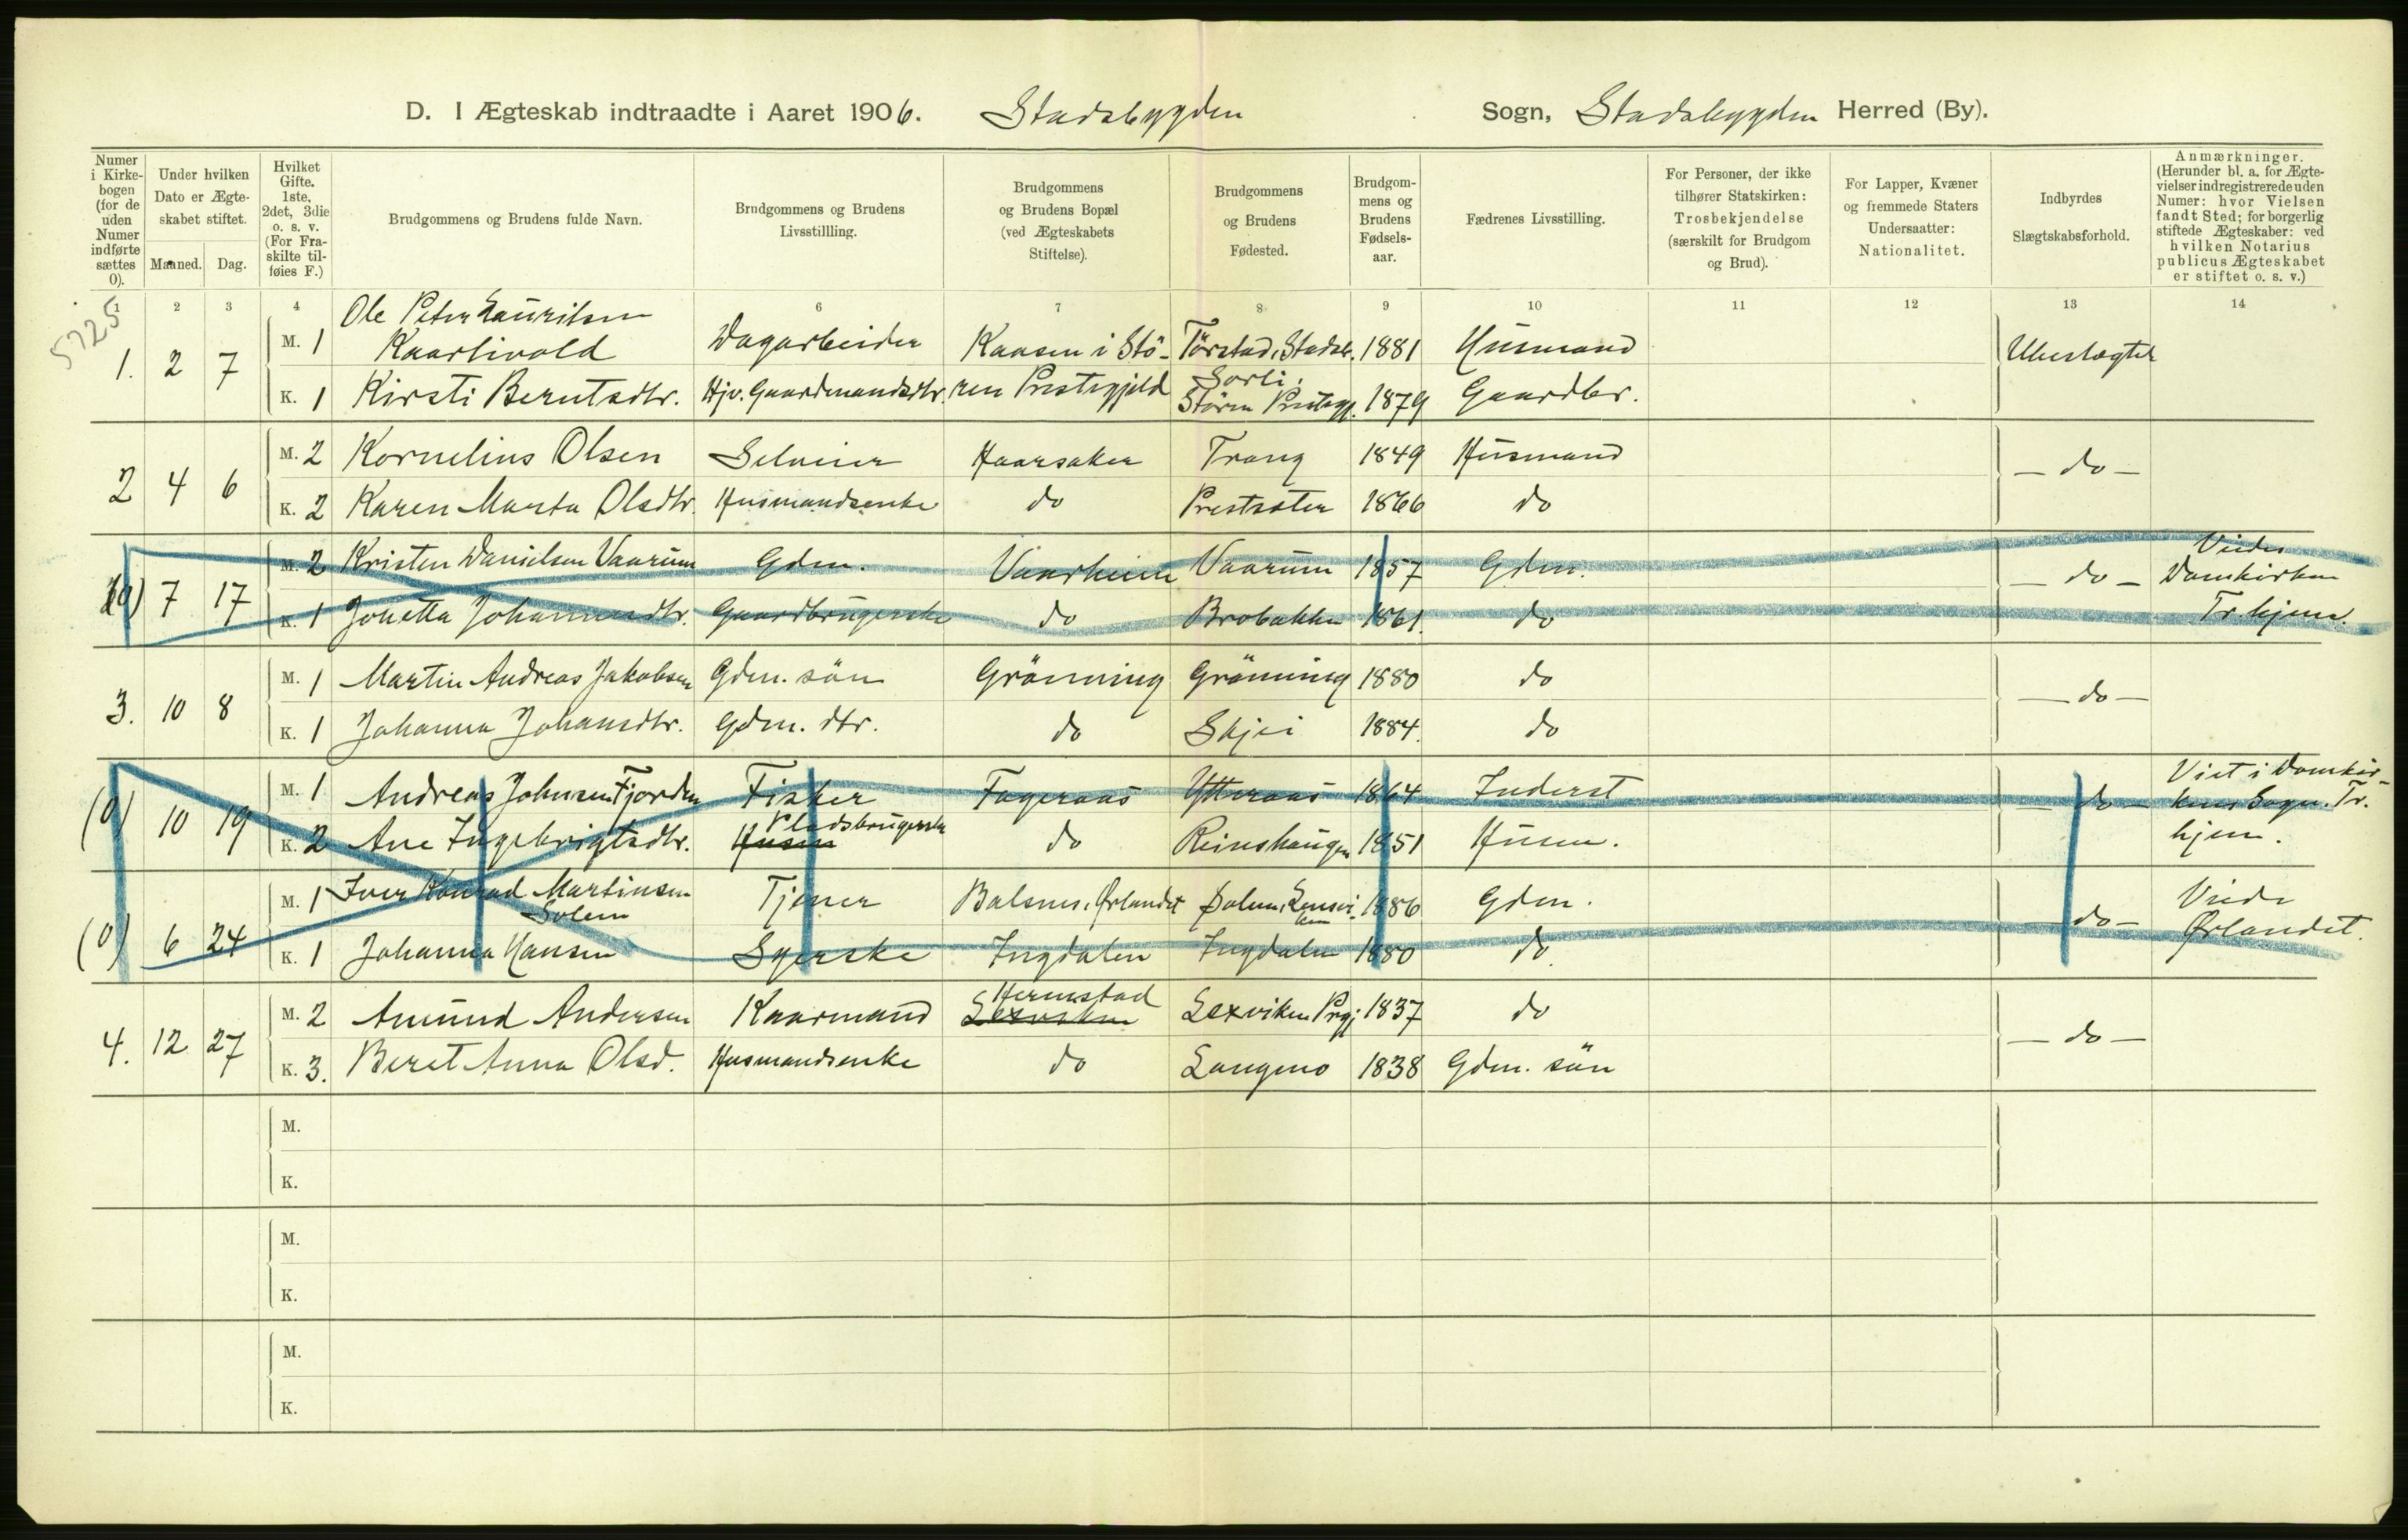 D. I Ægteskab indtraadte i Aaret 1906. Stadsbygden Sogn, Stadsbygden Herred (By).
Numer i Kirkebogen (for de uden Numer indførte sættes 0).
Under hvilken Dato er Ægteskabet stiftet.
Maaned. Dag.
Hvilket Gifte. 1ste, 2det, 3die o. s. v. (For Fraskilte tilføies F.)
Brudgommens og Brudens fulde Navn.
Brudgommens og Brudens Livsstillling.
Brudgommens og Brudens Bopæl (ved Ægteskabets Stiftelse).
Brudgommens og Brudens Fødested.
Brudgommens og Brudens Fødselsaar.
Fædrenes Livsstilling.
For Personer, der ikke tilhører Statskirken: Trosbekjendelse (særskilt for Brudgom og Brud).
For Lapper, Kvæner og fremmede Staters Undersaatter: Nationalitet.
Indbyrdes Slægtskabsforhold.
Anmærkninger. (Herunder bl. a. for Ægtevielser indregistrerede uden Numer: hvor Vielsen fandt Sted; for borgerlig stiftede Ægteskaber: ved hvilken Notarius publicus Ægteskabet er stiftet o. s. v.)
1 2 3 4 6 7 8 9 10 11 12 13 14
5725
1. 2 7 M. 1 Ole Peter Lauritsen Kaarlivold Dagarbeider Kaasen i Stö- Törstad, Stadsb. 1881 Husmand Ubeslægtet
K. 1 Kirsti Berntsdtr. Hjv. Gaardmandsdtr. ren Prestegjeld Sorli, Stören Prestegj. 1879 Gaardbr.
2 4 6 M. 2 Kornelius Olsen Selveier Haarsaker Trang 1849 Husmand — do —
K. 2 Karen Marta Olsdtr. Husmandsenke do Prestsæter 1866 do
(0) 7 17 M. 2 Kristen Danielsen Vaarum Gdm. Vaarheim Vaarum 1857 Gdm. — do — Viede Domkirken
K. 1 Johetta Johannesdtr. Gaardbrugerske do Brobakken 1861. do Tr.hjem.
3. 10 8 M. 1 Martin Andreas Jakobsen Gdm. sön Grönning Grönning 1880 do — do —
K. 1 Johanna Johansdtr. Gdm. dtr. do Skjei 1884. do
(0) 10 19 M. 1 Andreas Johnsen Fjorden Fisker Fageraas Ytteraas 1864 Inderst — do — Viet i Domkirkens Sogn. Tr.hjem.
K. 2 Ane Ingebrigtsdtr. Husm Pladsbrugerske do Reinshaugen 1851 Husm.
(0) 6 24 M. 1 Iver Konrad Martinsen Solem Tjener Balsnes, Ørlandet Solem, Lensviken 1886 Gdm. do — Viede
K. 1 Johanna Hansen Syerske Ingdalen Ingdalen 1880 do Ørlandet.
4. 12 27 M. 2 Amund Andersen Kaarmand Lexviken Hermstad Lexviken Prgj 1837 do — do —
K. 3. Beret Anna Olsd. Husmandsenke do Langmo 1838 Gdm. sön
M.
K.
M.
K.
M.
K.